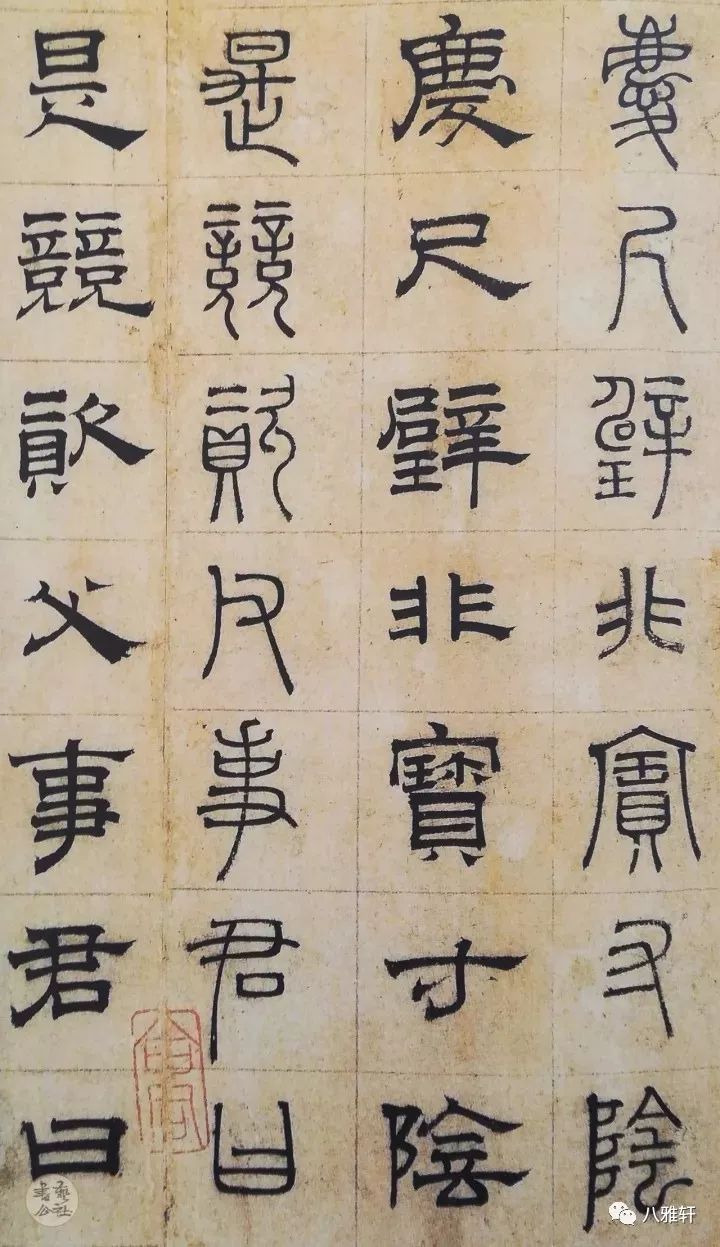 慶尺璧非寶寸陰
慶尺璧非寶寸陰
是競資父事君曰
是競資父事君曰
八雅轩